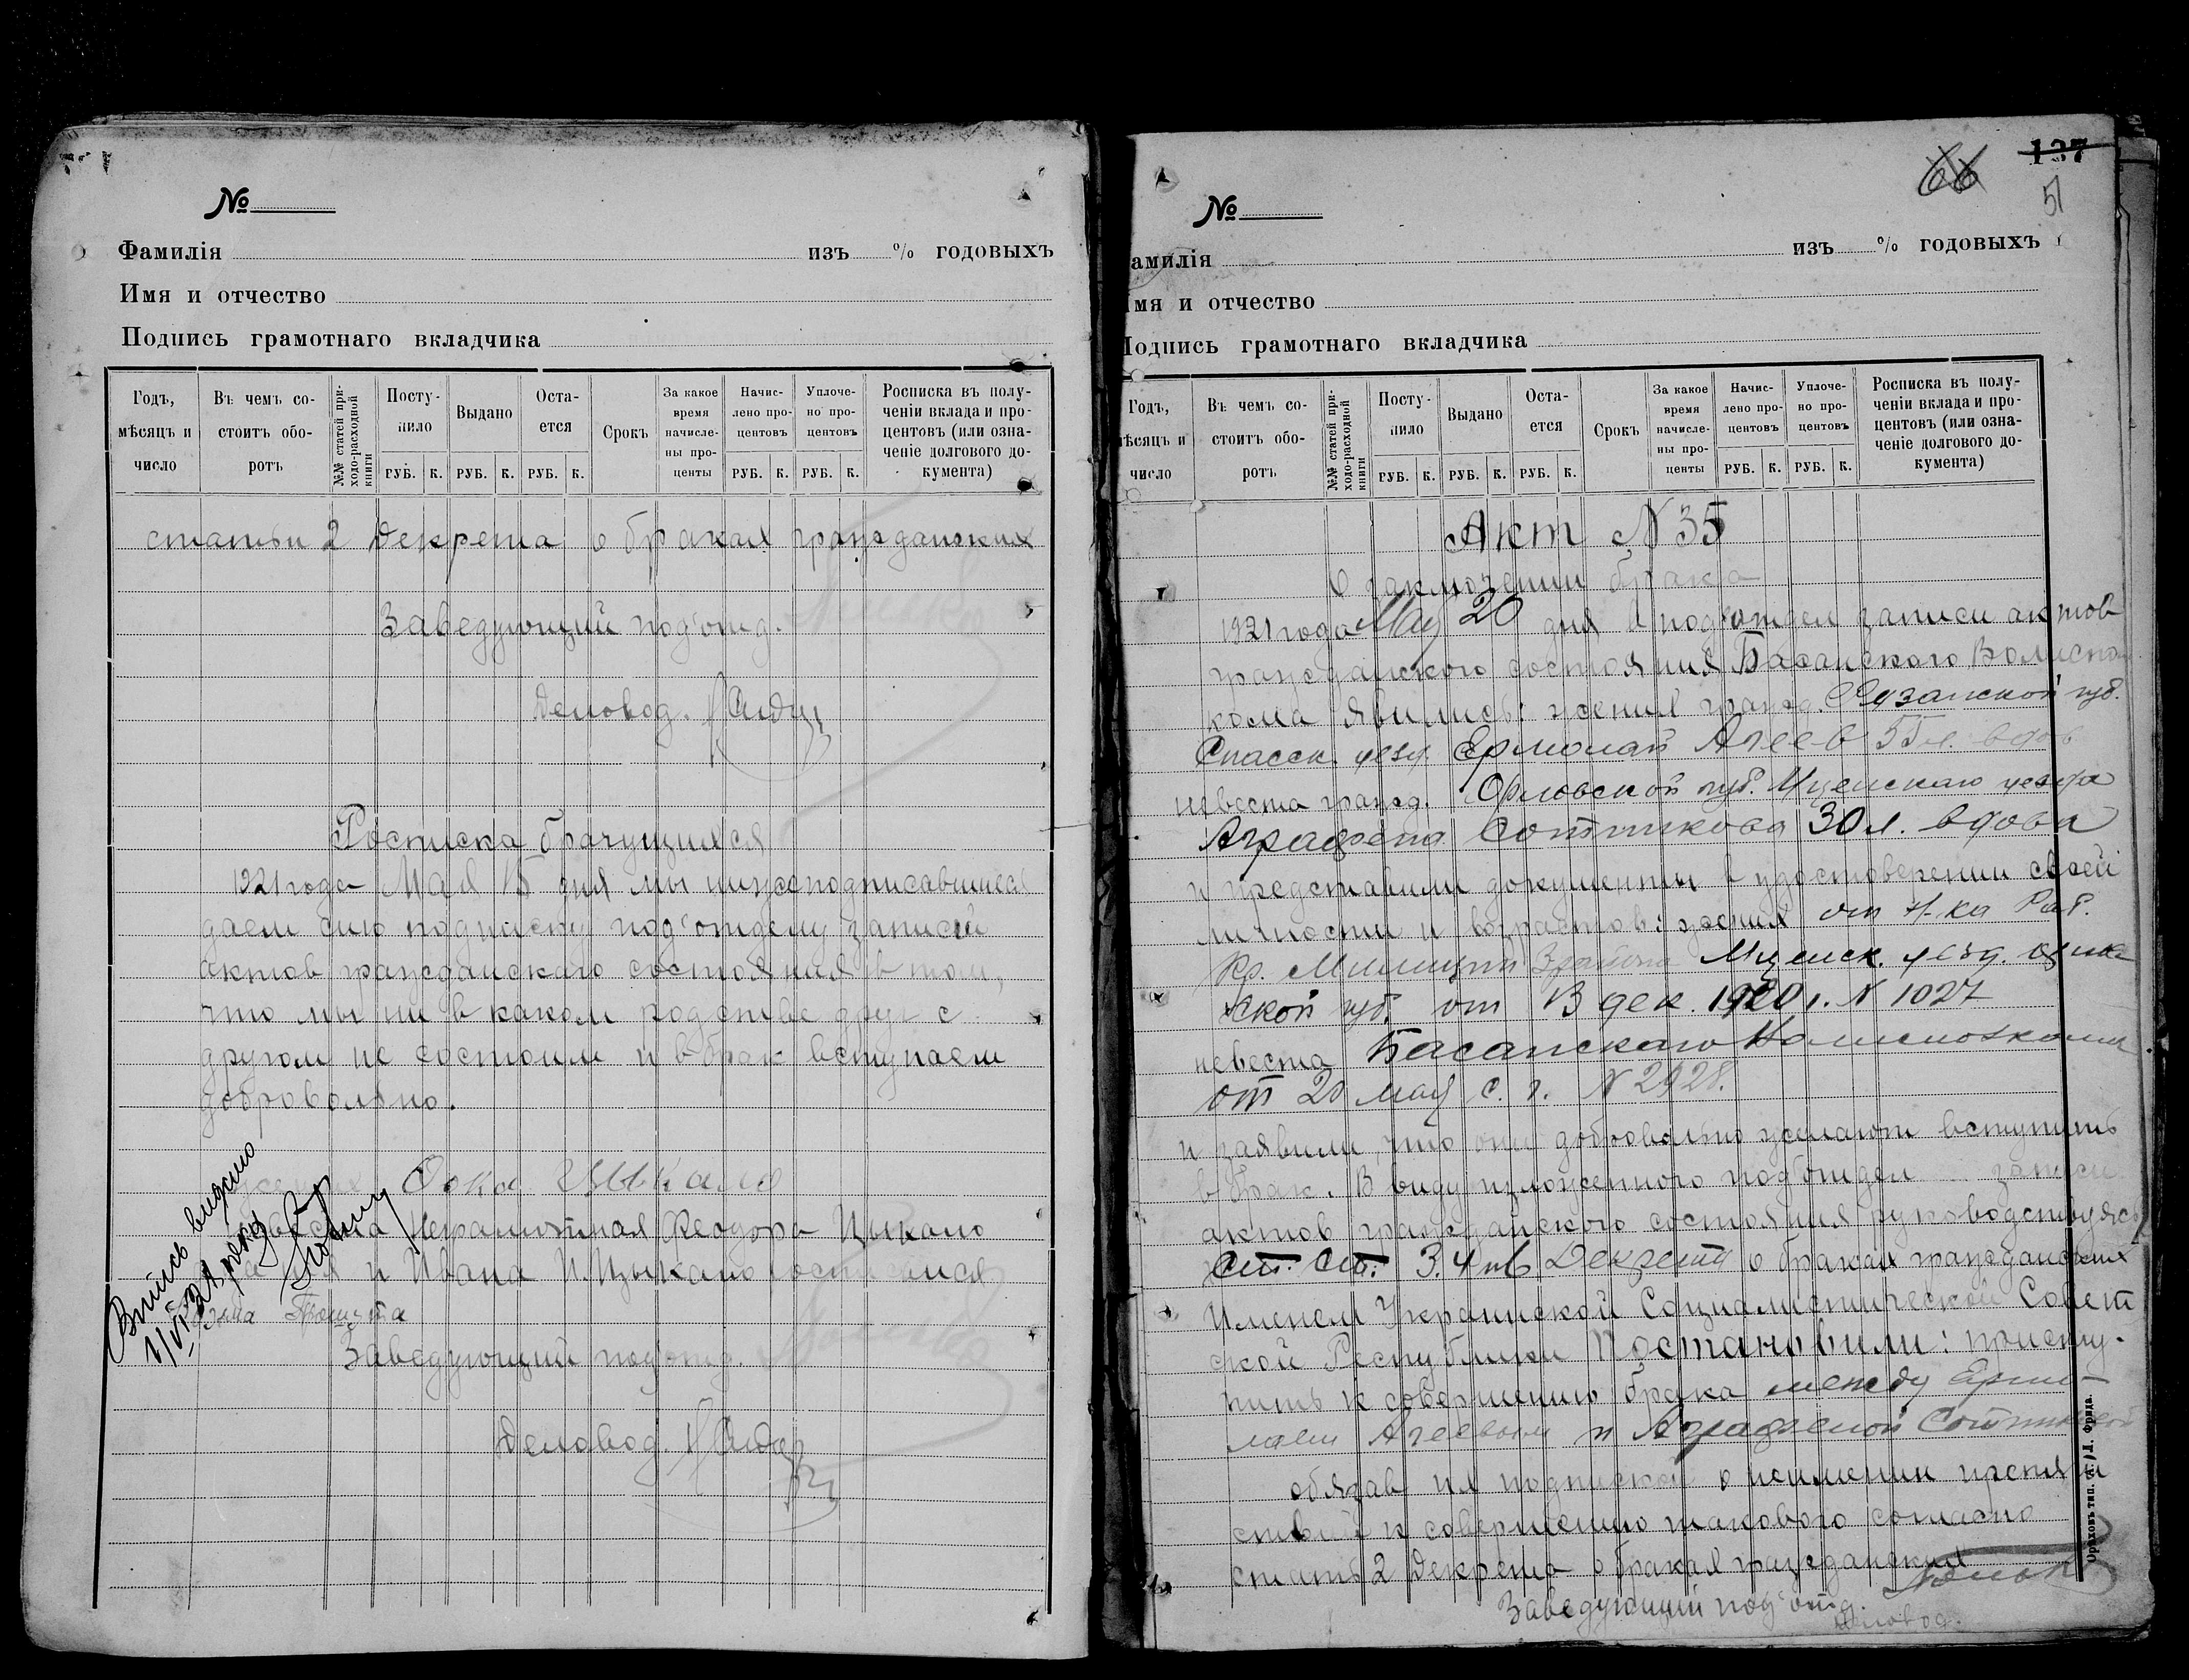 №
Фамилія изъ % годовыхъ
Имя и отчество
Подпись грамотнаго вкладчика
Годъ, мѣсяцъ и число
Въ чемъ состоитъ оборотъ
№№ статей приходо-расходной книги
Поступило
Выдано
Остается
Срокъ
За какое время начислены проценты
Начислено процентовъ
Уплочено процентовъ
Росписка въ полученіи вклада и процентовъ (или означеніе долгового документа)
РУБ. К. РУБ. К. РУБ. К. РУБ. К. РУБ. К.
статьи 2 декрета о браках гражданских
Заведующий под'отд.
Деловод.
Росписка брачущихся
1921 года Мая 15 дня мы нижеподписавшиеся
даем сию подписку под'отделу записи
актов гражданскаго состояния в том,
что мы ни в каком родстве друг с
другом не состоим и в брак вступаем
добровольно.
жених Фока Цыкало
невеста Неграмотная Феодора Цыкало
и Ивана Цыкало
Заведующий под'отд.
Деловод.
137
66
51
№
амилія изъ % годовыхъ
Имя и отчество
Подпись грамотнаго вкладчика
Годъ, мѣсяцъ и число
Въ чемъ состоитъ оборотъ
№№ статей приходо-расходной книги
Поступило
Выдано
Остается
Срокъ
За какое время начислены проценты
Начислено процентовъ
Уплочено процентовъ
Росписка въ полученіи вклада и процентовъ (или означеніе долгового документа)
РУБ. К. РУБ. К. РУБ. К. РУБ. К. РУБ. К.
Акт N 35
О заключении брака
1921 года Мая 20 дня в под'отдел записи актов
гражданского состояния Басанского Волиспол
кома явились: жених гражд. Рязанской губ.
Спасск. уезд. Ермолай Агеев 55 л. вдов
невеста гражд. Орловской губ. Мценскаго уезда
Аграфена Сотникова 30 л. вдова
и представили документы в удостоверении своей
личности и возрастов: жених от Н-ка Раб.
Кр. Милиции 3 района Мценск. уезд.
ской губ. от 13 дек. 1920 г. N 1027
невеста Басанскаго Волисполкома
от 20 мая с. г. N 2928.
и заявили, что они добровольно желают вступить
в брак. В виду изложенного под'отдел записи
актов гражданского состояния руководствуясь
ст. ст. 3. 4 и 6 Декрета о браках гражданских
Именем Украинской Социалистической Совет
ской Республики Постановили: присту-
пить к совершению брака между Ермо-
лаем Агеевым и Аграфеной Сотниковой
обязав их подпиской о неимении препят
ствий к совершению такового согласно
стать 2 декрета о браках гражданских
Заведующий под'отд.
Деловод.
Орѣховъ тип. А. Д. Фрида